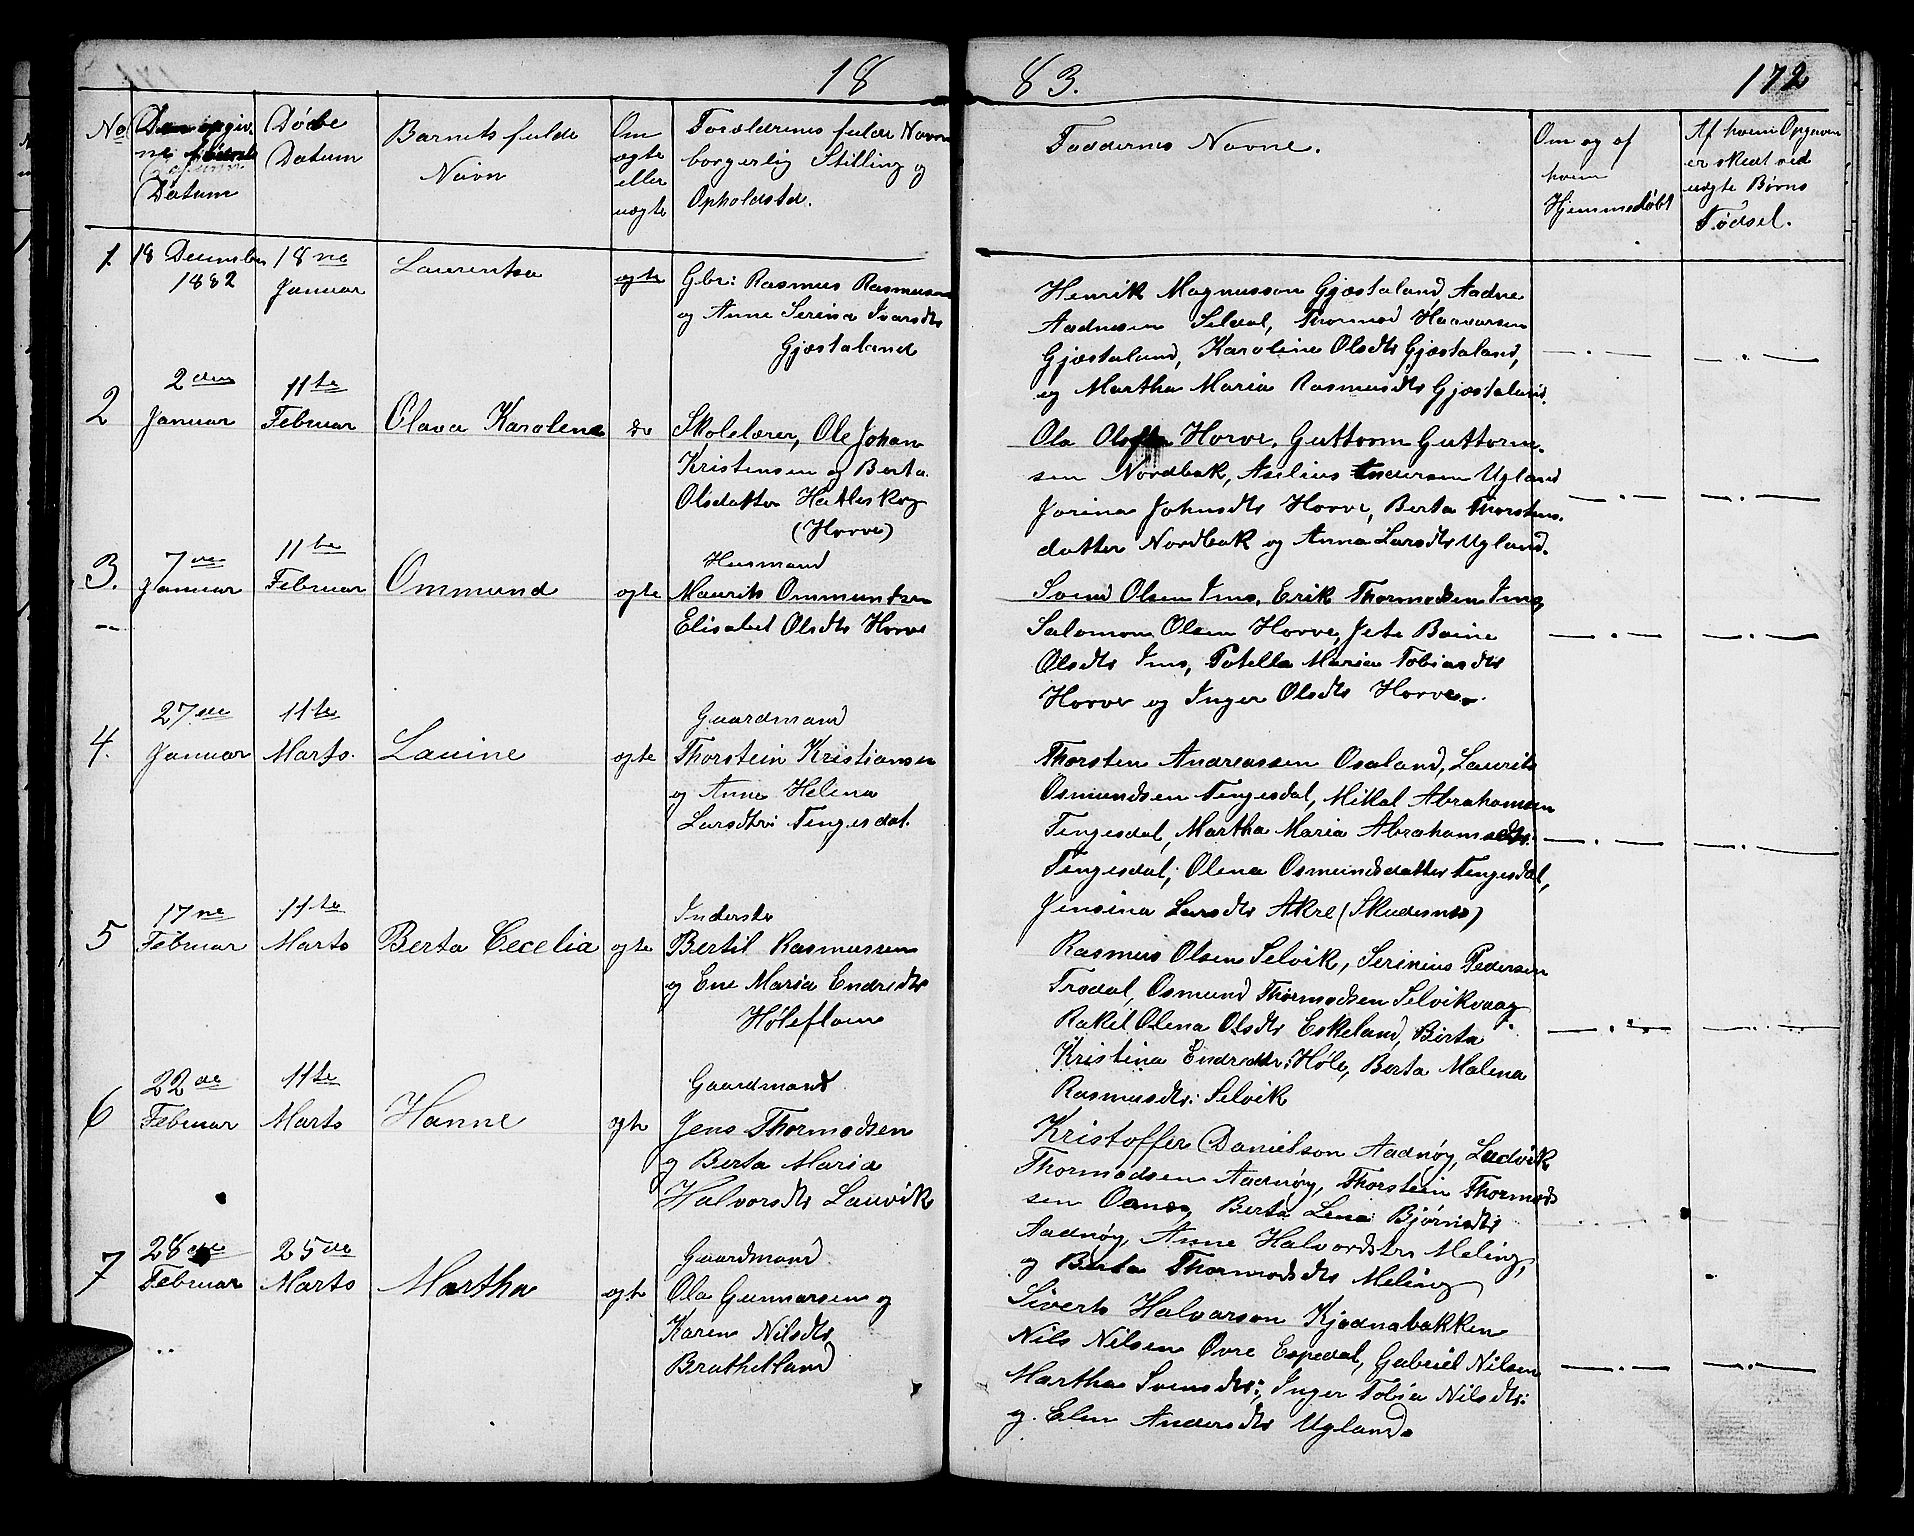 18
83.
172
No
Den opgiv.
ne
Datum
Døbe
Datum
Barnets fulde
Navn
Om
ægte
eller
uægte
Forældrenes fulde Navn
borgerlig Stilling og
Opholdsted.
Faddernes Navne.
Om og af
hvem
Hjemmedøbt
Af hvem Opgaven
er skedt ved
uægte Børns
Fødsel.
1.
18 December
1882
18ne
Januar
Laurentse
ægte
Gbr: Rasmus Rasmusen
og Anne Serina Ivarsdtr
Gjøstaland
Henrik Magnusson Gjøstaland, Aadne
Aadnesen Seldal, Thormod Haavarsen
Gjøstalund, Karoline Olsdtr Gjøstaland,
og Martha Maria Rasmusdtr Gjøstaland.
2
2den
Januar
11te
Februar
Olava Karolena
do
Skolelærer, Ole Johan
Kristensen og Berta
Olsdatter Hatleskog
(Horve)
Ola Horve, Guttorm Guttorm-
sen Nordbak, Aselius Andersen Ugland
Jorina Johnsdtr Horve, Berta Thorstens-
datter Nordbak og Anna Larsdtr Ugland.
3.
7de
Januar
11te
Februar
Ommund
ægte
Husmand
Maurits Ommundsen
Elisabet Olsdtr Horve
Svend Olsen Ims, Erik Thormodsen Ims
Salomon Olsen Horve, Jete Boine
Olsdtr Ims, Potella Maria Tobiasdtr
Horve og Inger Olsdtr Horve.
4.
27de
Januar
11te
Marts.
Lauine
ægte
Gaardmand
Thorstein Kristiansen
og Anne Helena
Larsdtr: Tengesdal.
Thorsten Andreassen Osaland, Laurits
Osmundsen Tengesdal, Mikal Abrahamsen
Tengesdal, Martha Maria Abrahamsdtr:
Tengesdal, Olena Osmundsdatter Tengesdal,
Jensina Larsdtr Akre (Skudesnes)
5
17ne
Februar
11te
Marts
Berta Cecelia
ægte
Inderste
Bertil Rasmussen
og Ene Maria Endredtr
Høleflaen
Rasmus Olsen Selvik, Serinius Pedersen
Trodal, Osmund Thormodsen Selvikvaag
Rakel Olena Olsdtr Eskeland, Berta
Kristina Endredtr: Høle, Berta Malena
Rasmusdtr: Selvik
6
22de
Februar
11te
Marts
Hanne
ægte
Gaardmand
Jens Thormodsen
og Berta Maria
Halvorsdtr Lauvik
Kristoffer Danielson Aadnøy, Ludvik
Thormodsen Aadnøy, Thorstein Thormod-
sen Berta Lene Bjørnsdtr
Aadnøy, Anne Halvordstr Meling,
og Berta Thormodsdtr Meling
7
28de
Februar
25de
Marts
Martha
ægte
Gaardmand
Ola Gunnarsen og
Karen Nilsdtr
Brathetland
Siverts Halvarson Kjødnabakken
Nils Nilsen Øvre Espedal, Gabriel Nilsen
Martha Svensdtr:, Inger Tobia Nilsdtr:
og. Elen Andersdtr Ugland.